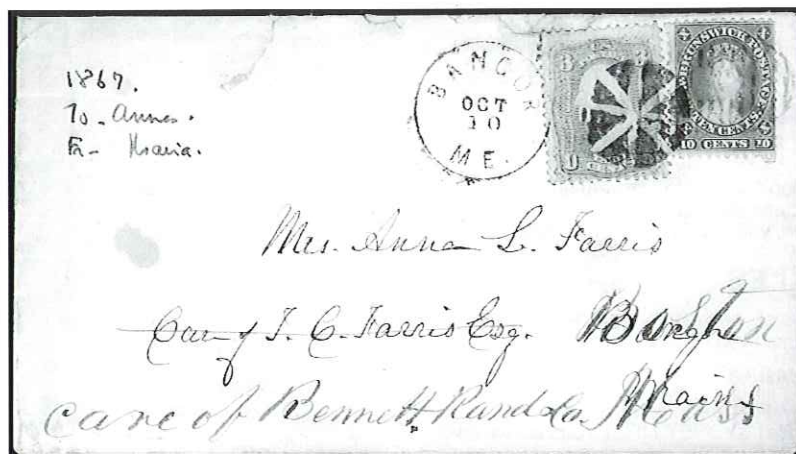 1867.
To - Anna.
Fr - Maria.
BANGOR
OCT
10
ME.
3 U.S. 3
N. BRUNSWICK POSTAGE
TEN CENTS.
10 CENTS 10
Mrs. Anna L. Farris
Care of T. C. Farris Esq. Boston
care of Bennett Rand & Co. Mass